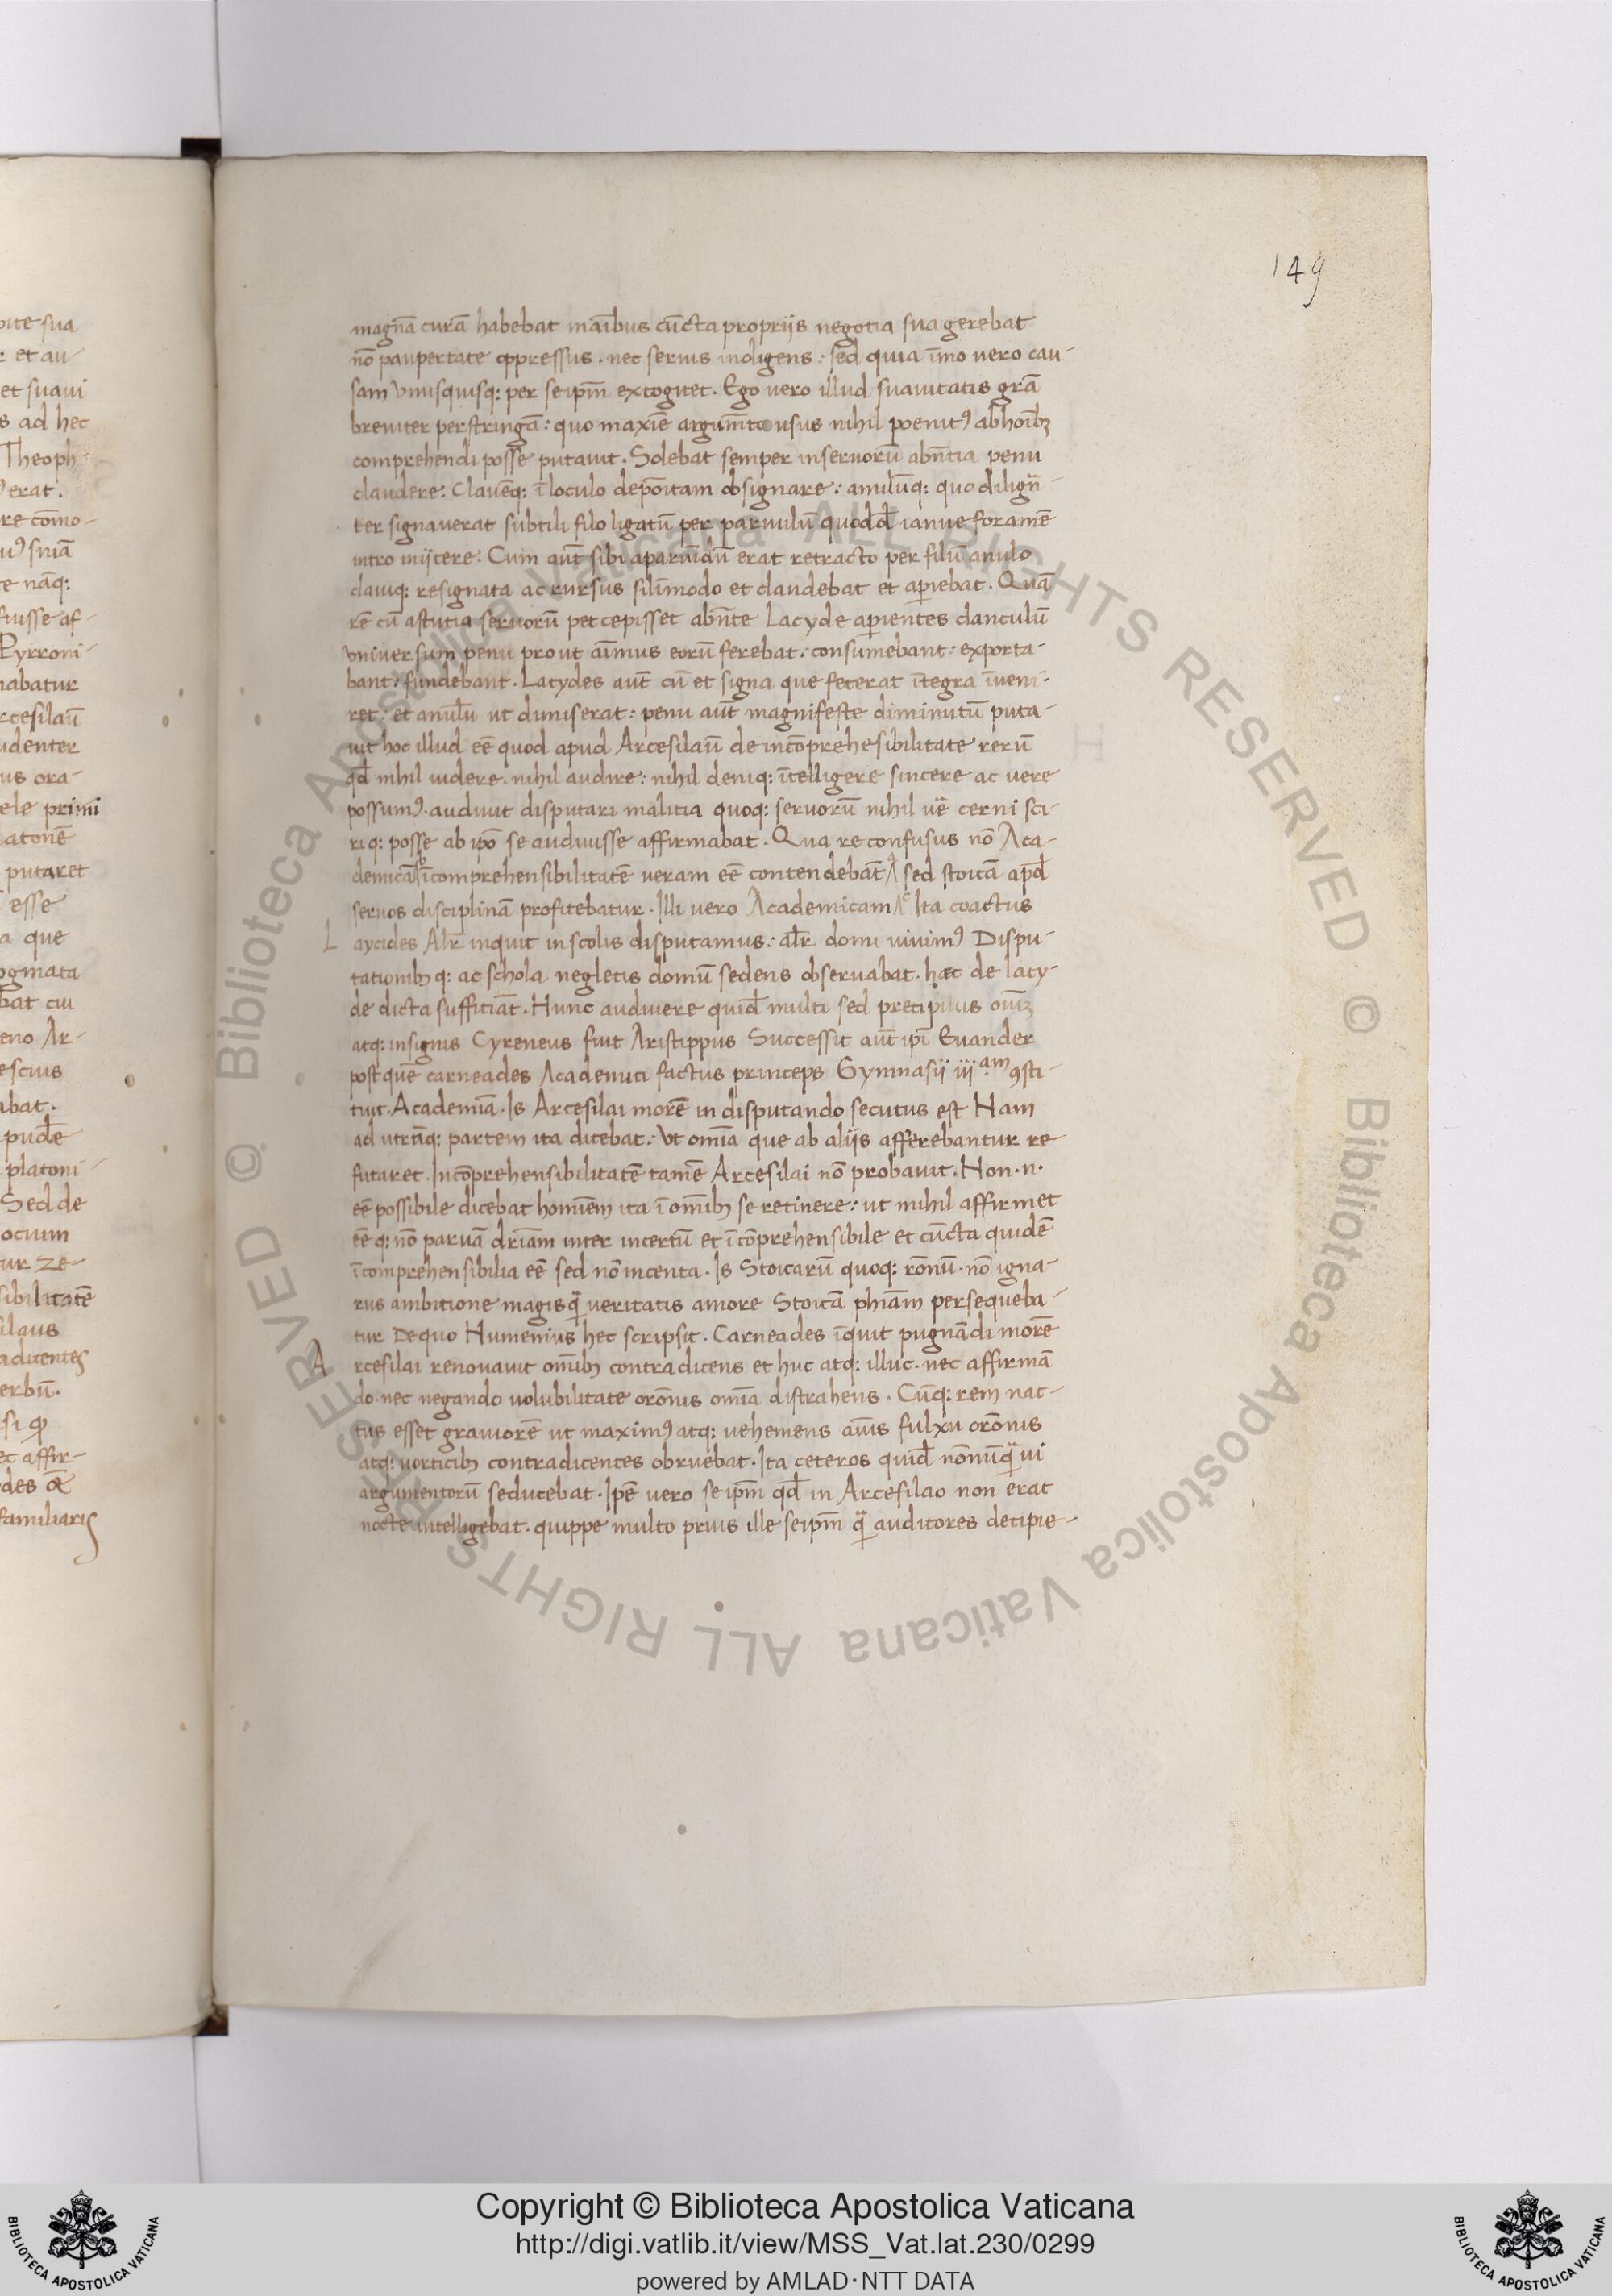 149
magnā curā habebat maībus cūcta proprijs negotia sua gerebat
nō paupertate oppressus . nec seruis indigens : sed quia īmo uero cau-
sam vnusquisq: per seipm̄ excogitet . Ego uero illud suauitatis grā
breuiter perstringā : quo maxīe argum̄to usus nihil poenitꝰ ab hoībꝫ
comprehendi posse putauit . Solebat semper in seruorū abn̄tia penu
claudere : Clauēq: ī loculo depōitam obsignare : anulūq: quo dilign̄-
ter signauerat subtili filo ligatū per paruulū quodd̄ ianue foramē
intro inijcere . Cum aūt sibi aparuīdū erat retracto per filū anulo
clauiq: resignata ac rursus silīmodo et claudebat et apiebat . Quā
rē cū astutia seruorū percepisset abn̄te Lacyde apientes clanculū
vniuersum penu prout aīmus eorū ferebat . consumebant : exporta-
bant : fundebant . Lacydes aūt cū et signa que fecerat ītegra īueni-
ret : et anulū ut dimiserat : penu aūt magnifeste diminutū puta-
uit hoc illud eē quod apud Arcesilaū de incōprehesibilitate rerū
qd̄ nihil uidere . nihil audire : nihil deniq: ītelligere sincere ac uere
possumꝰ . audiuit disputari malitia quoq: seruorū nihil uē cerni sci-
riq: posse ab ipō se audiuisse affirmabat . Qua re confusus nō Aca-
demicā īcomprehensibilitatē ueram eē contendebāt sed stoicā apd̄
seruos disciplinā profitebatur . Illi uero Academicam Ita coactus
L aycides Alr̄ inquit in scolis disputamus : alr̄ domi uiuimꝰ Dispu-
tationibꝫ q: ac schola negletis domū sedens obseruabat . hæc de lacy-
de dicta sufficiāt . Hunc audiuere quid̄ multi sed precipuus oīuꝫ
atq: insignis Cyreneus fuit Aristippus Successit aūt ipī Euander
post quē carneades Academici factus princeps Gymnasij iij am ꝯsti-
tuit . Academiā . Is Arcesilai morē in disputando secutus est Nam
ad utrāq: partem ita dicebat : Vt omīa que ab alijs afferebantur re-
futaret . Incōprehensibilitatē tamē Arcesilai nō probauit . Non . n .
eē possibile dicebat homīem ita ī omībꝫ se retinere : ut nihil affirmet
eē q: nō paruā dr̄iam inter incertū et īcōprehensibile et cūcta quidē
īcomprehensibilia eē sed nō incenta . Is Stoicarū quoq: rōnū . nō igna-
rus ambitione magis q̄ ueritatis amore Stoicā phiām persequeba-
tur De quo Numenius hec scripsit . Carneades īquit pugnādi morē
A rcesilai renouauit omībꝫ contradicens et huc atq: illuc . nec affirmā
do . nec negando uolubilitate orōnis omīa distrahens . Cūq: rem nac-
tus esset grauiorē ut maximꝰ atq: uehemens amīs fulxu orōnis
atq: uorticibꝫ contradicentes obruebat . Ita ceteros quid̄ nōnūq̄ ui
argumentorū seducebat . Ipē uero seipm̄ qd̄ in Arcesilao non erat
nocte intelligebat . quippe multo prius ille seipm̄ q̄ auditores decipie-
Copyright © Biblioteca Apostolica Vaticana
http://digi.vatlib.it/view/MSS_Vat.lat.230/0299
powered by AMLAD·NTT DATA